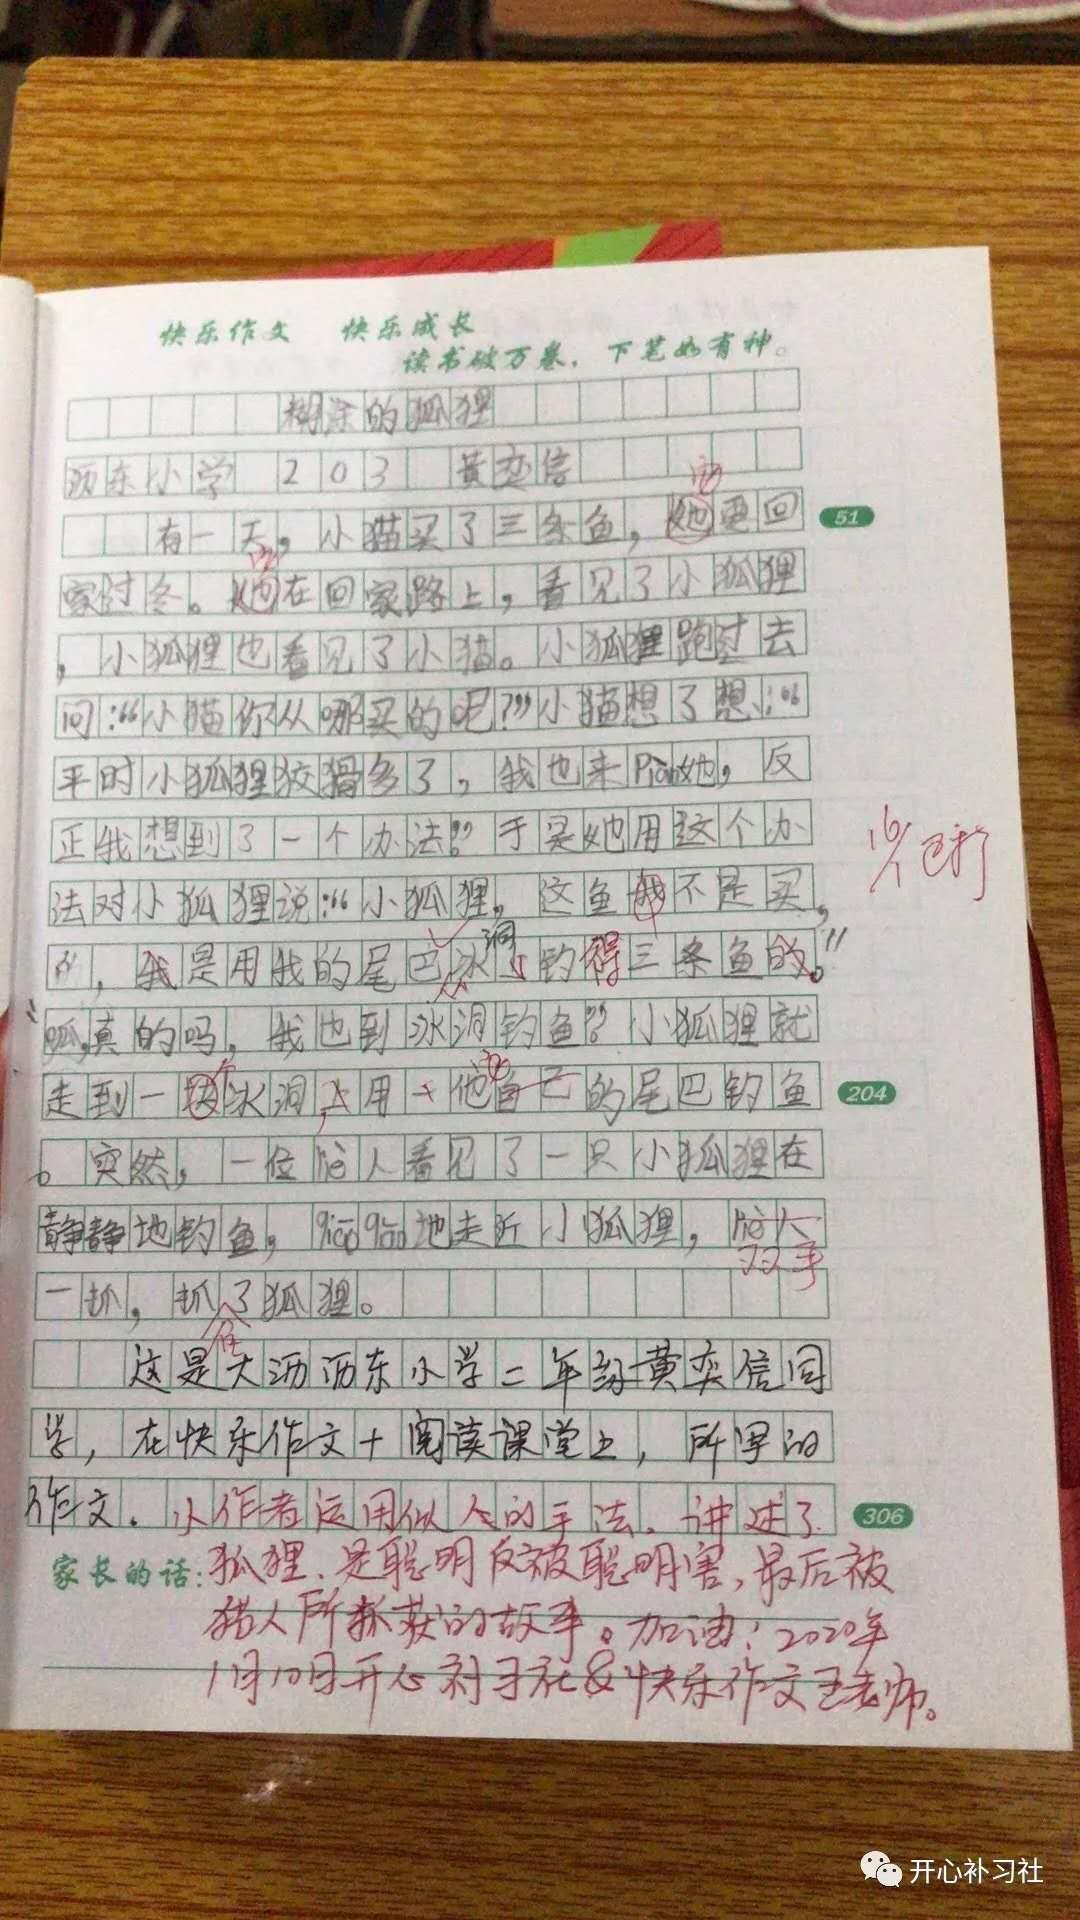 快乐作文 快乐成长
读书破万卷，下笔如有神。
糊涂的狐狸
沥东小学 203 黄奕信
它
有一天，小猫买了三条鱼，她要回
51
它
家过冬。她在回家路上，看见了小狐狸
，小狐狸也看见了小猫。小狐狸跑过去
问：“小猫你从哪买的呢？”小猫想了想：“
平时小狐狸狡猾多了，我也来Pian她，反
正我想到了一个办法”。于是她用这个办
法对小狐狸说：“小狐狸，这鱼我不是买，
洞
”，我是用我的尾巴冰钓得三条鱼的。”
从
“呱，真的吗，我也到冰洞钓鱼”？小狐狸就
个 它
走到一块冰洞上用他自己的尾巴钓鱼
204
。突然，一位lie人看见了一只小狐狸在
静静地钓鱼，qiaoqiao地走近小狐狸，lie人
双手
一抓，抓了狐狸。
住
这是大沥沥东小学二年级黄奕信同
学，在快乐作文+阅读课堂上，所写的
作文。小作者运用似人的手法，讲述了
306
家长的话：狐狸，是聪明反被聪明害，最后被
猎人所抓获的故事。加油！2020年
1月10日开心补习社&快乐作文王老师。
已打
开心补习社